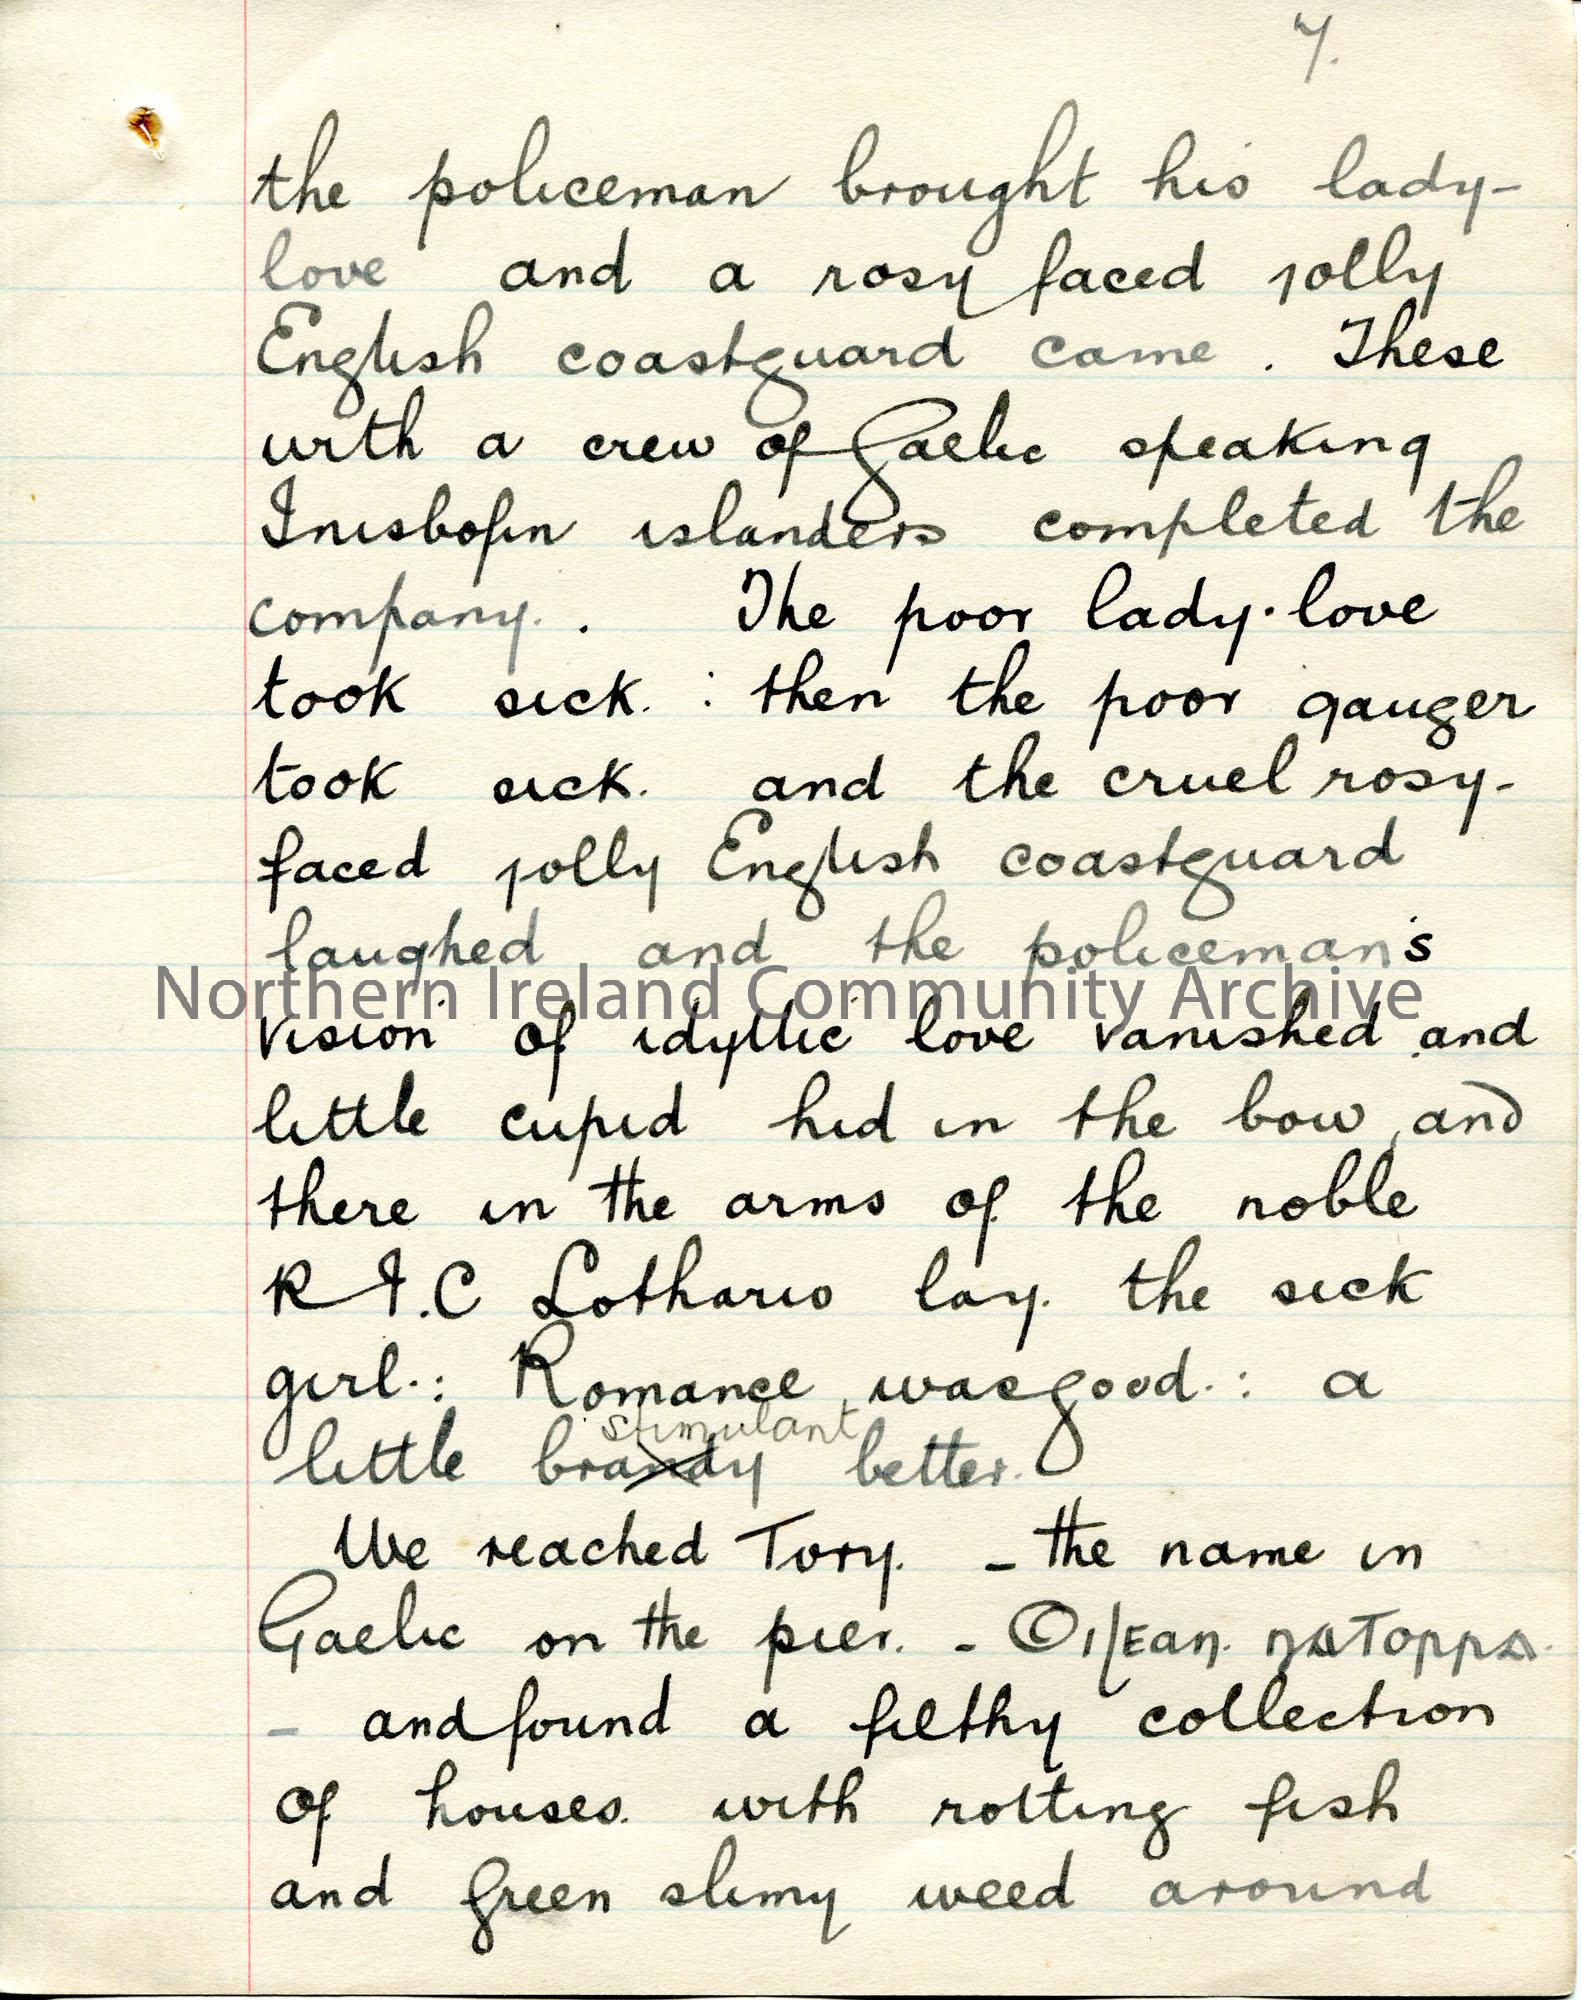 7.
the policeman brought his lady-
love and a rosy faced jolly
English coastguard came. These
with a crew of Gaelic speaking
Inisbofin islanders completed the
company. . The poor lady-love
took sick. : then the poor gauger
took sick. and the cruel rosy-
faced jolly English coastguard
laughed and the policeman's
Northern Ireland Community Archive
vision of idyllic love vanished and
little cupid hid in the bow, and
there in the arms of the noble
R I.C Lothario lay. the sick
girl. : Romance was good. : a
stimulant
little brandy better.
We reached Tory. – the name in
Gaelic on the pier. – Oiłean na Torra.
– and found a filthy collection
of houses. with rotting fish
and green slimy weed around